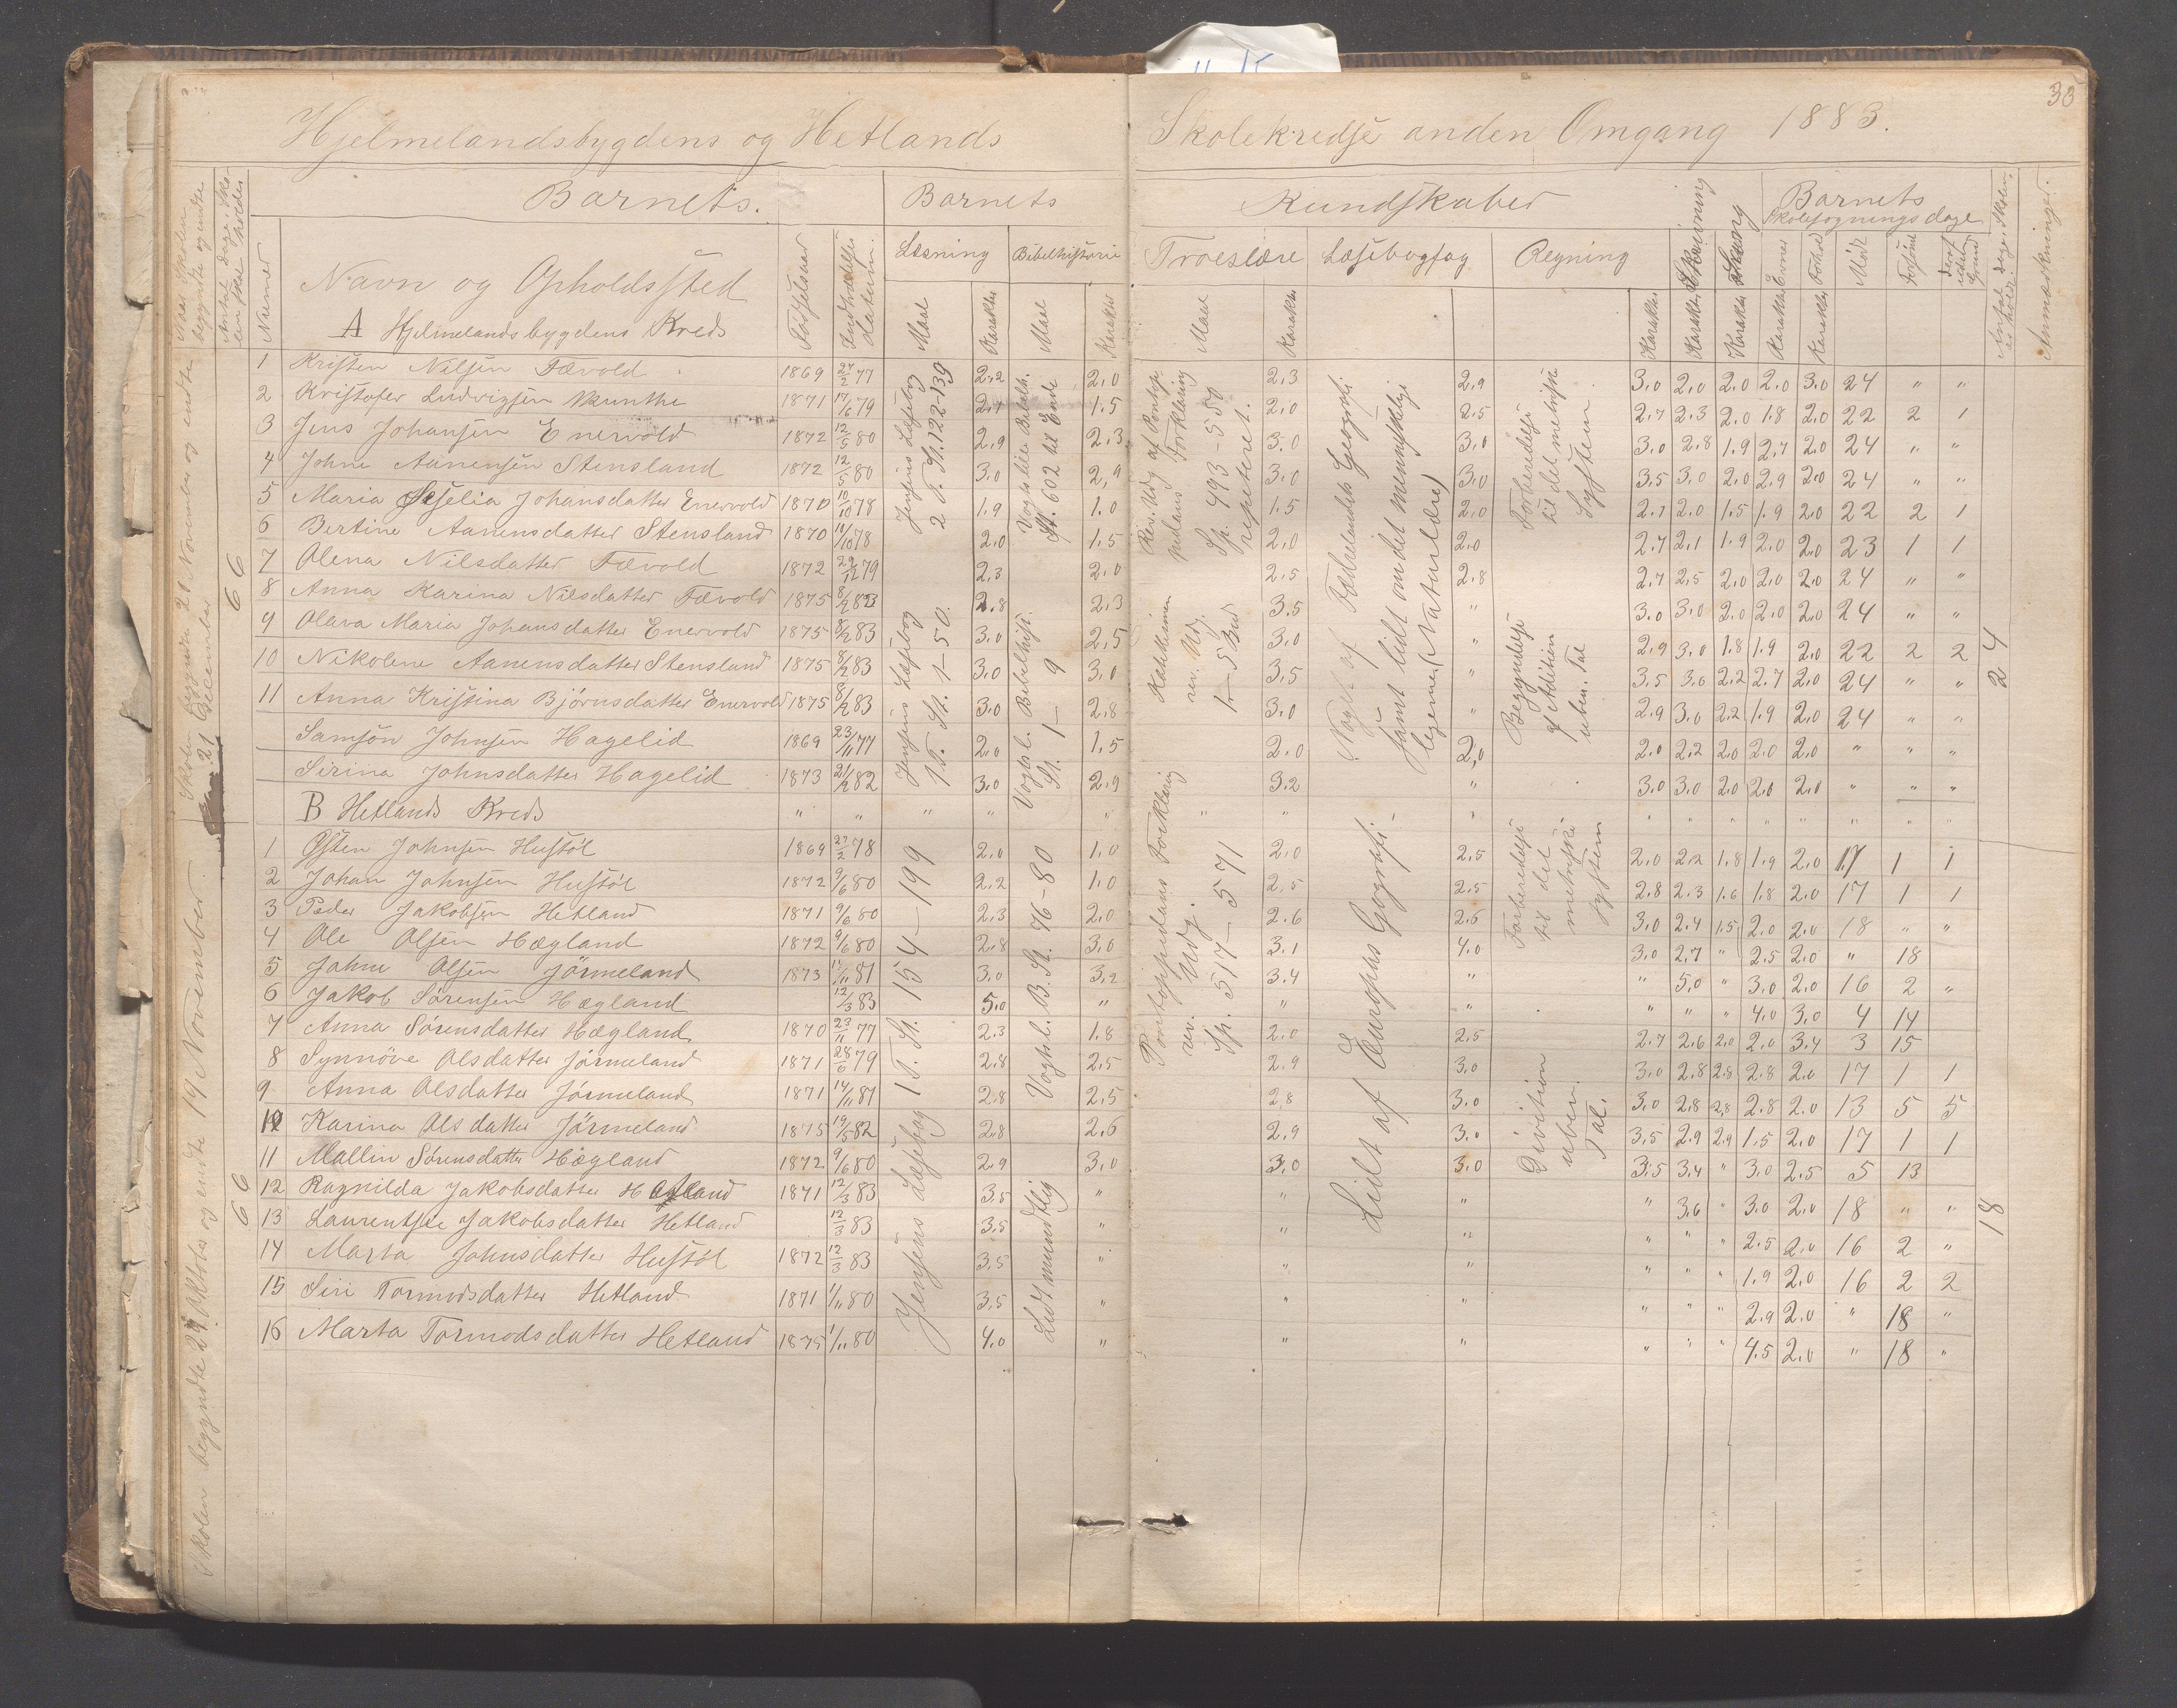 35
Hjelmelandsbygdens og Hetlands Skolekredse anden Omgang 1883.
Barnets. Barnets Kundskaber Barnets Skolesøgningsdage
Naar Skolen begyndte og endte
Numer
Navn og Opholdssted
A Hjelmelandsbygdens Kreds
Fødselsaar
Læsning Bibelhistorie Troeslære Læsebogfag Regning Skrivning Sang
Maal Karakter Maal Karakter Maal Karakter Karakter Karakter Karakter Evner Forhold Mødt Forsømt
Anmærkninger.
Skolen begyndte 21 November og endte 21 December
66
Jensens Læsebog 2 T. St. 122-139
Vogts lille Bibelh. St. 602 til Ende
Rev. Udg. af Pontoppidans Forklaring Sp. 493-550 repeteret.
Noget af Fædrelandets Geografi samt lidt om det menneskelige legeme (Naturlære)
Forberedelse til det metriske System
1 Kristen Nilsen Fævold 1869 27/2 77 2,2 2,0 2,3 2,9 3,0 2,0 2,0 2,0 3,0 24 " "
2 Kristofer Ludvigsen Munthe 1871 17/6 79 2,1 1,5 2,0 2,5 2,7 2,3 2,0 1,8 2,0 22 2 1
3 Jens Johansen Enervold 1872 12/5 80 2,9 2,3 3,0 3,0 3,0 2,8 1,9 2,7 2,0 24 " "
4 Johne Aanensen Stensland 1872 12/5 80 3,0 2,9 3,0 3,0 3,5 3,0 2,0 2,9 2,0 24 " "
5 Maria Seselia Johansdatter Enervold 1870 10/10 78 1,9 1,0 1,5 2,0 2,1 2,0 1,5 1,9 2,0 22 2 1
6 Bertine Aanensdatter Stensland 1870 11/10 78 2,0 1,5 2,0 2,0 2,7 2,1 1,9 2,0 2,0 23 1 1
7 Olena Nilsdatter Fævold 1872 29/12 79 2,3 2,0 2,5 2,8 2,7 2,5 2,0 2,0 2,0 24 " "
Jensens Læsebog 1 T. St. 1-50.
Vogts l. Bibelhist. St. 1-9
Katekismen rev. Udg. 1-5 Bud
Begyndelse af Adition uben. Tal
24
8 Anna Karina Nilsdatter Fævold 1875 8/2 83 2,8 2,3 3,5 " 3,0 3,0 2,0 2,0 2,0 24 " "
9 Olava Maria Johansdatter Enervold 1875 8/2 83 3,0 2,5 3,0 " 2,9 3,0 1,8 1,9 2,0 22 2 2
10 Nikoline Aanensdatter Stensland 1875 8/2 83 3,0 3,0 3,5 " 3,5 3,6 2,2 2,7 2,0 24 " "
11 Anna Kristina Bjørnsdatter Enervold 1875 8/2 83 3,0 2,8 3,0 " 2,9 3,0 2,2 1,9 2,0 24 " "
Samson Johnsen Hagelid 1869 23/11 77 2,0 1,5 2,0 2,0 2,0 2,2 2,0 2,0 2,0 " " "
Sirina Johnsdatter Hagelid 1873 21/2 82 3,0 2,9 3,2 " 3,0 3,0 2,0 2,0 2,0 " " "
B Hetlands Kreds
Skolen begyndte 29 Oktober og endte 19 November.
66
Jensens Læsebog 1 T. St. 154-199
Vogts l. B. St. 76-80
Lidt mundtlig
Pontoppidans Forklaring rev. Udg. Sp. 517-571
Lidt af Europas Geografi
Forberedelse til det metriske System
Division uben. Tal.
18
1 Østen Johnsen Hustøl 1869 27/2 78 2,0 1,0 2,0 2,5 2,0 2,2 1,8 1,9 2,0 17 1 1
2 Johan Johnsen Hustøl 1872 9/6 80 2,2 1,0 2,5 2,5 2,8 2,3 1,6 1,8 2,0 17 1 1
3 Peder Jakobsen Hetland 1871 9/6 80 2,3 2,0 2,6 2,6 3,0 2,4 1,5 2,0 2,0 18 " "
4 Ole Olsen Hægland 1872 9/6 80 2,8 3,0 3,1 4,0 3,0 2,7 " 2,5 2,0 " 18
5 Johne Olsen Jørmeland 1873 14/11 81 3,0 3,2 3,4 " " 5,0 " 3,0 2,0 16 2 "
6 Jakob Sørensen Hægland 12/3 83 5,0 " " " " " " 4,0 3,0 4 14
7 Anna Sørensdatter Hægland 1870 23/11 77 2,3 1,8 2,0 2,5 2,7 2,6 2,0 2,0 3,4 3 15
8 Synnøve Olsdatter Jørmeland 1871 28/6 79 2,8 2,5 2,9 3,0 3,0 2,8 2,8 2,8 2,0 17 1 1
9 Anna Olsdatter Jørmeland 1871 14/11 81 2,8 2,5 2,8 3,0 3,0 2,8 2,8 2,8 2,0 13 5 5
10 Karina Olsdatter Jørmeland 1875 19/5 82 2,8 2,6 2,9 3,0 3,5 2,9 2,9 1,5 2,0 17 1 1
11 Mallin Sørensdatter Hægland 1872 9/6 80 2,9 3,0 3,0 3,0 3,5 3,4 " 3,0 2,5 5 13
12 Ragnilda Jakobsdatter Hetland 1871 12/3 83 3,5 " " " " 3,6 " 3,0 2,0 18 " "
13 Laurentse Jakobsdatter Hetland 12/3 83 3,5 " " " " " " 2,5 2,0 16 2 "
14 Marta Johnsdatter Hustøl 1872 12/3 83 3,5 " " " " " " 1,9 2,0 16 2 2
15 Siri Tormodsdatter Hetland 1871 1/11 80 3,5 " " " " " " 2,9 2,0 " 18 "
16 Marta Tormodsdatter Hetland 1875 1/11 80 4,0 " " " " " " 4,5 2,0 " 18 "